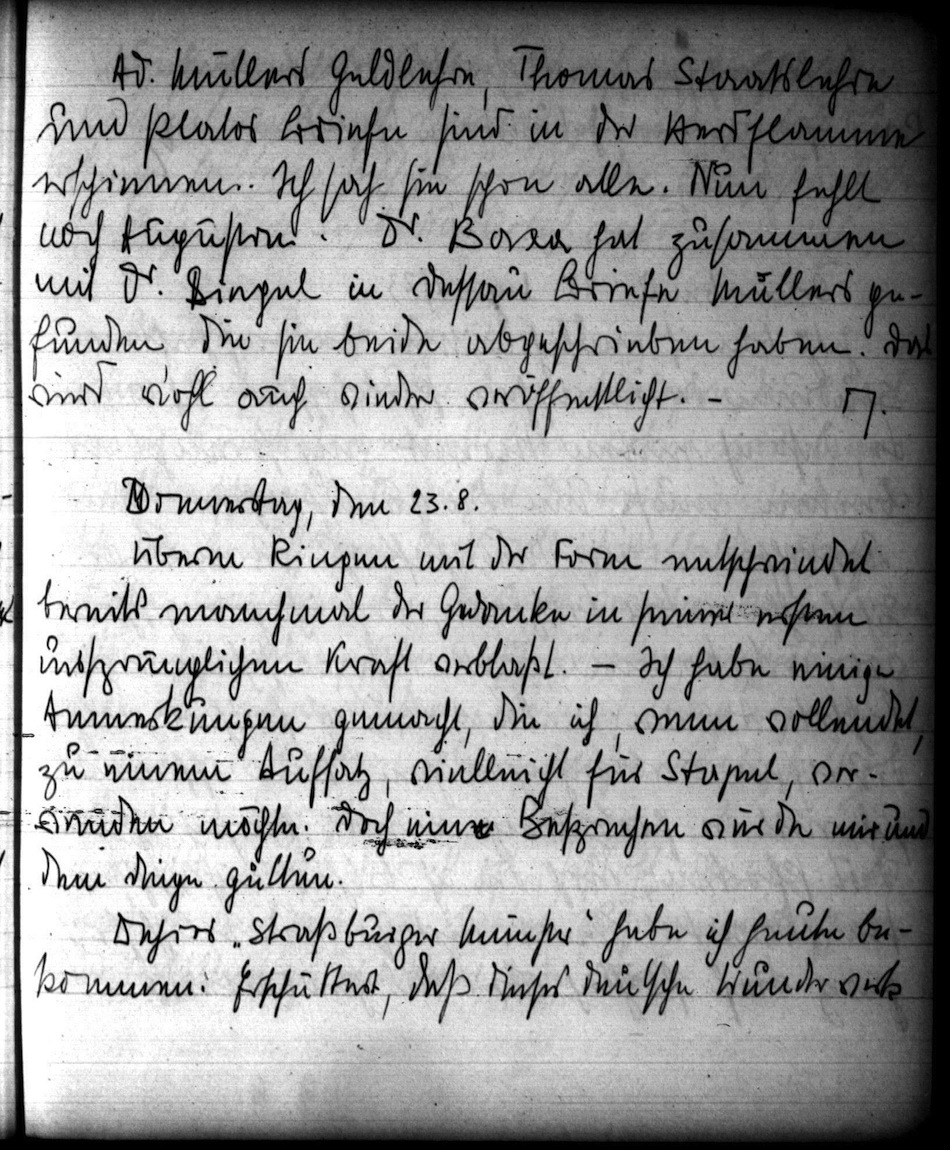 Ad. Müllers Geldlehre, Thomas Staatslehre
und Platos Briefe sind in der Herdflamme
erschienen. Ich sah sie schon alle. Nun fehlt
noch Augustin. Dr. Baxa hat zusammen
mit Dr. in Dessau Briefe Müllers ge-
funden, die sie beide abgeschrieben haben. Das
wird wohl auch wieder veröffentlicht. –
Donnerstag, den 23.8.
Überm Ringen mit der Form entschwindet
bereits manchmal der Gedanke in seiner ersten
ursprünglichen Kraft verblaßt. – Ich habe einige
Anmerkungen gemacht, die ich, wenn vollendet,
zu einem Aufsatz, vielleicht für Stapel, ver-
wenden möchte. Doch ein Besprechen würde mir und
dem Dinge gut tun.
Dehios „Straßburger Münster" habe ich heute be-
kommen: Erschüttert, daß dieses deutsche Wunderwerk